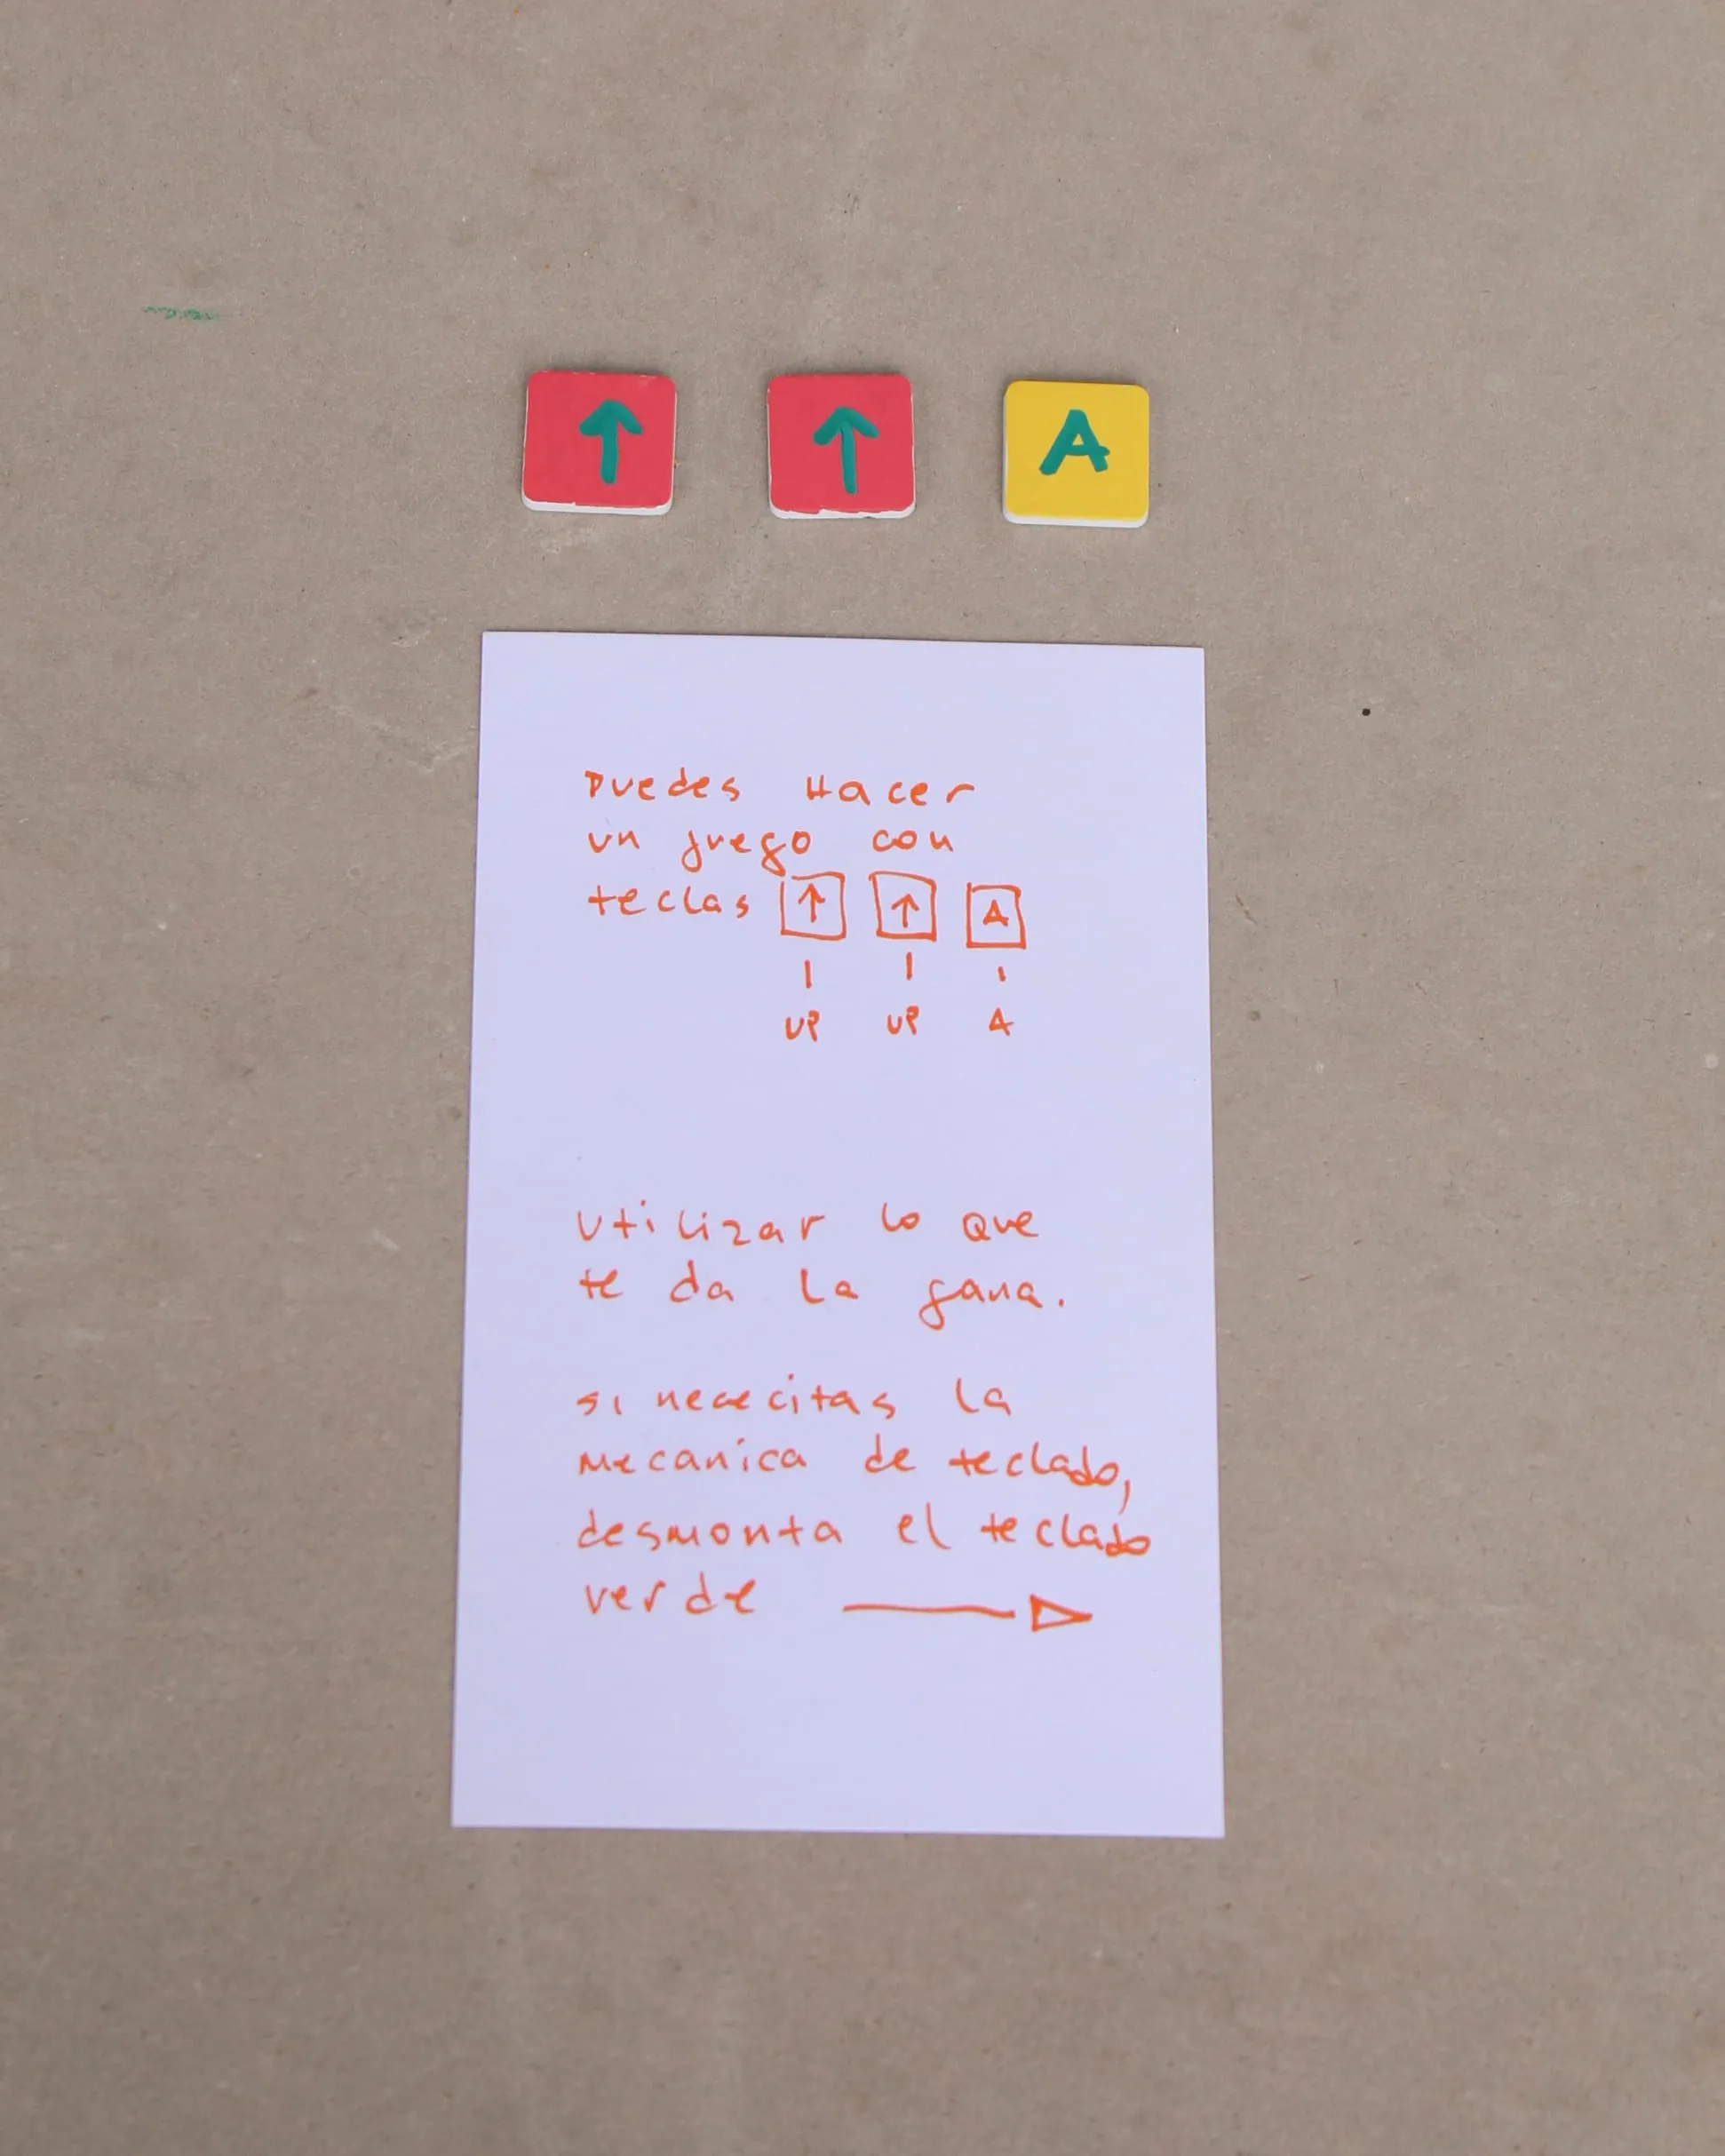 ↑ ↑ A
Puedes Hacer
un juego con
teclas ↑ ↑ A
UP UP A
Utilizar lo que
te da la gana.
si nececitas la
mecanica de teclado,
desmonta el teclado
verde →